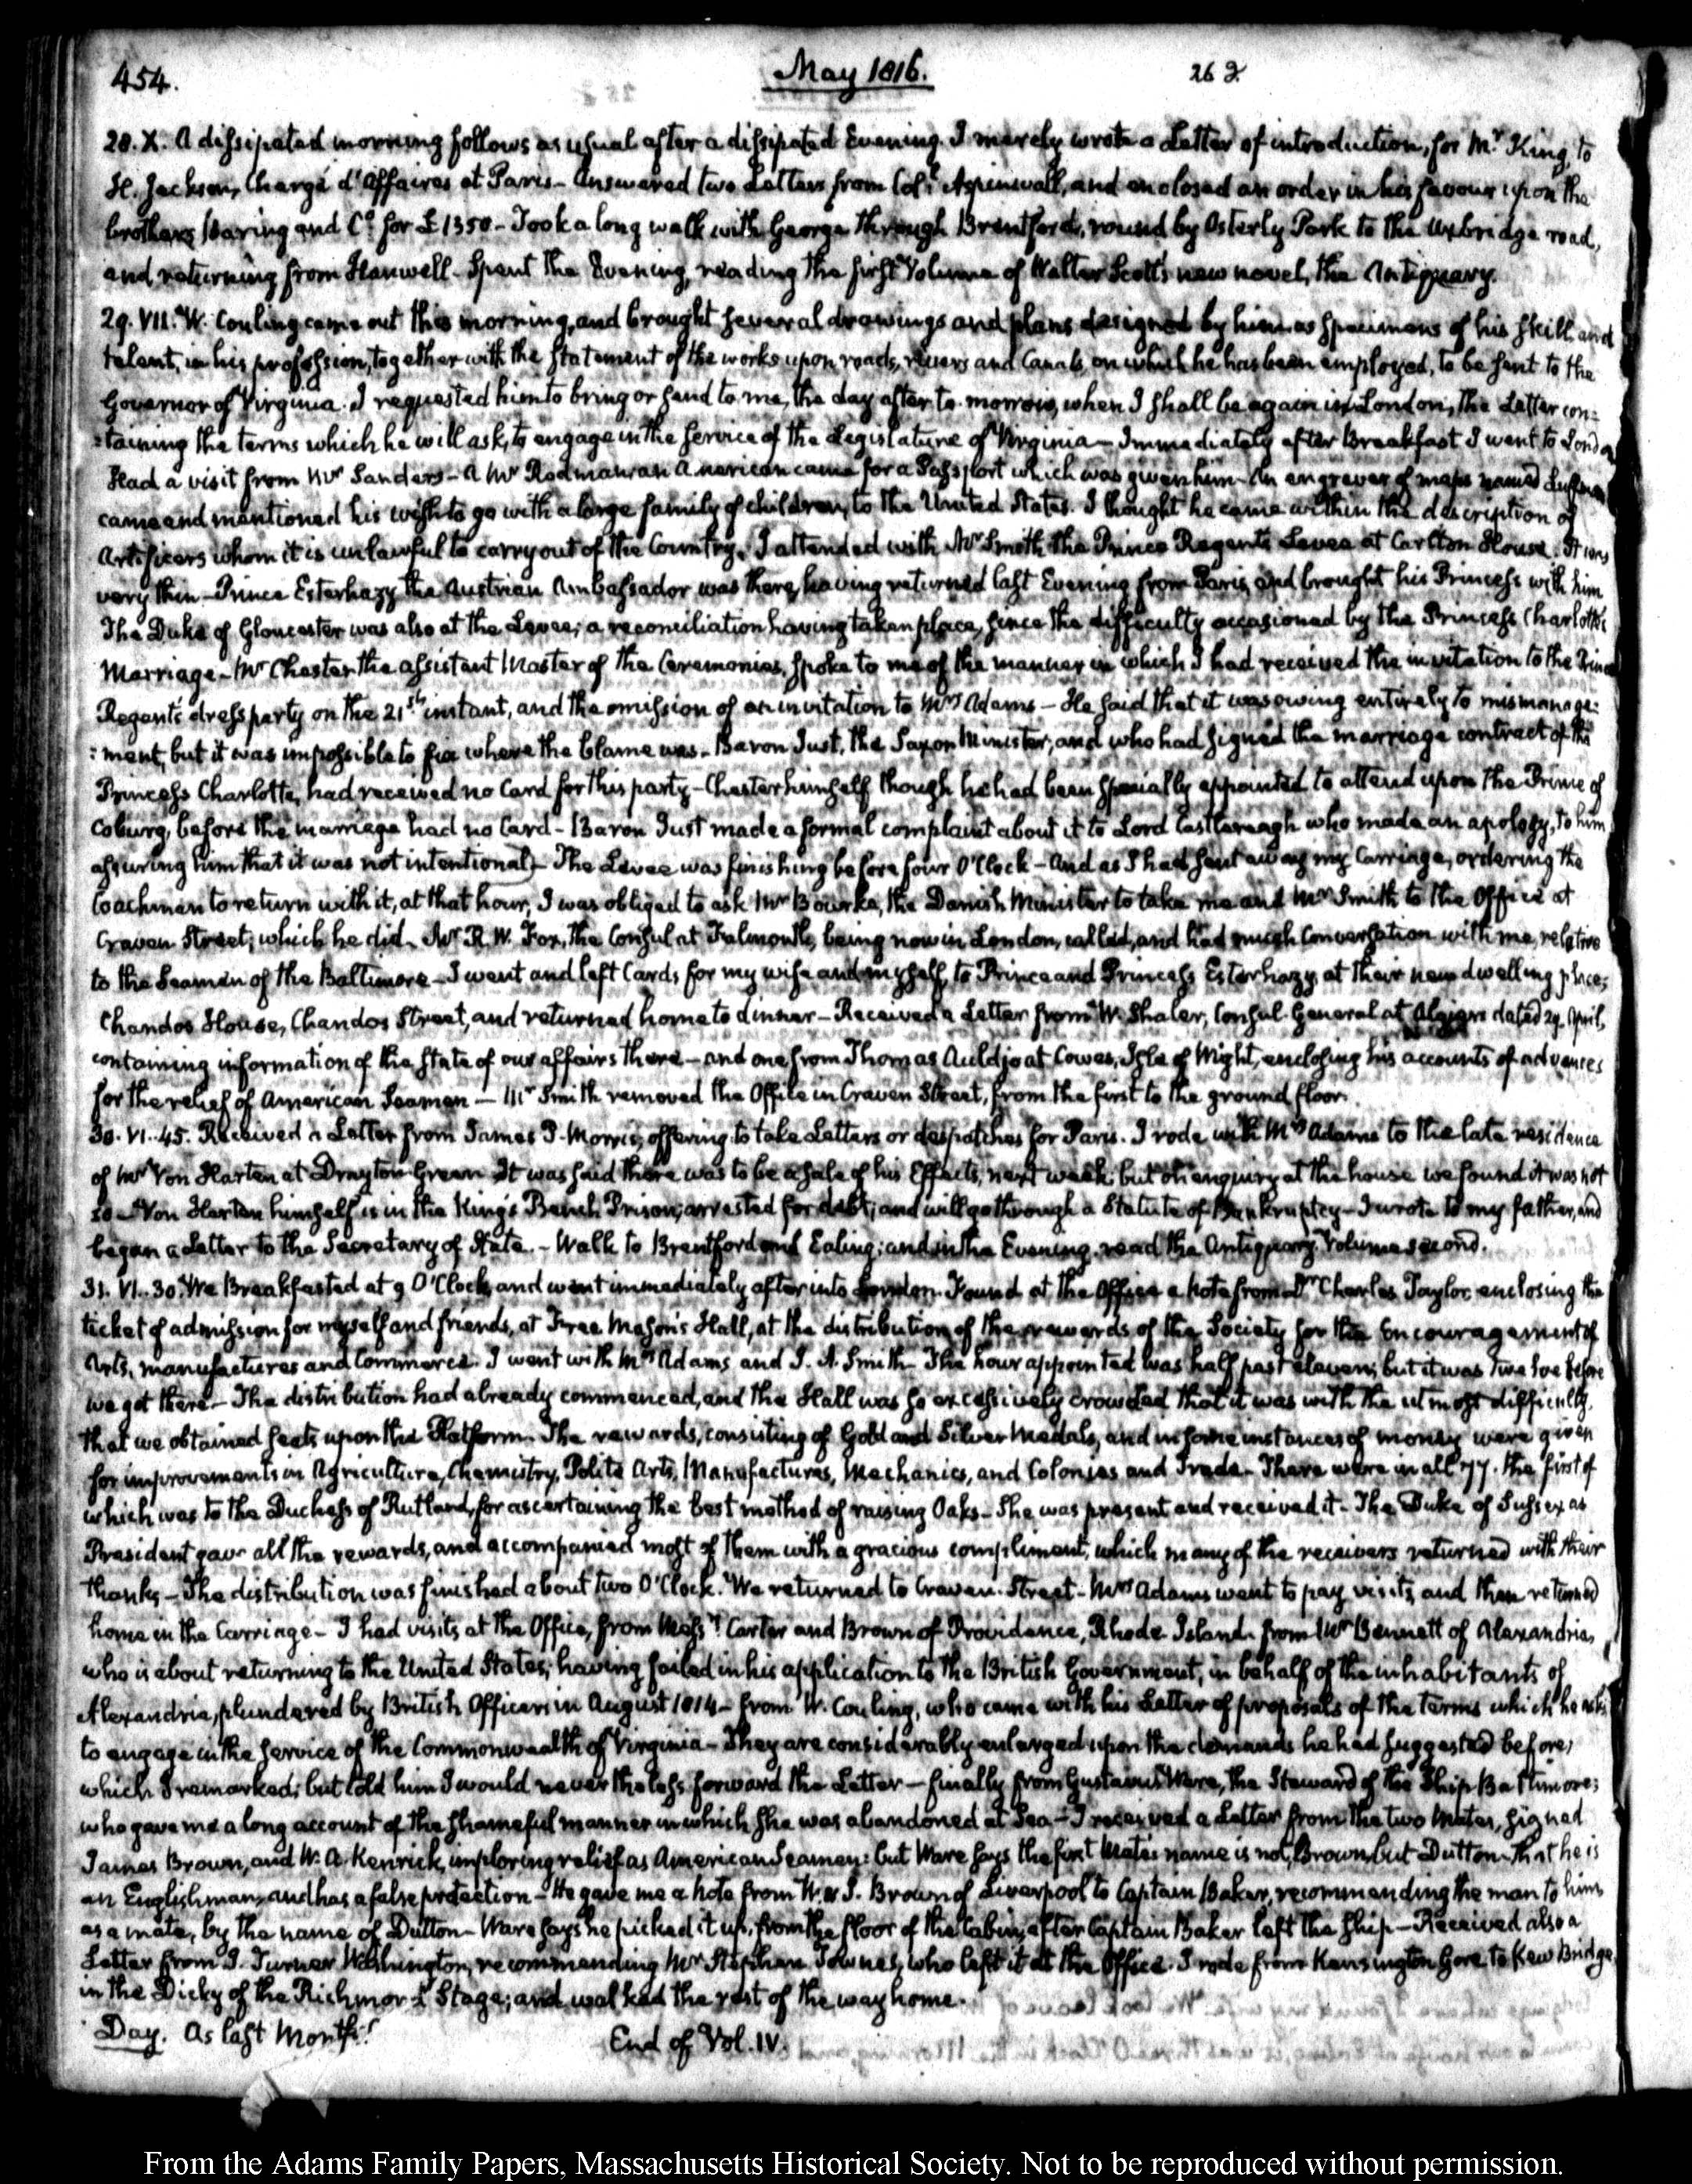 454.
May 1816.
262
28. X. A dissipated morning follows as usual after a dissipated Evening. I merely wrote a Letter of introduction, for Mr. King, to
H. Jackson, Chargé d'Affaires at Paris – Answered two Letters from Coll. Aspinwall, and enclosed an order in his favour upon the
brothers Baring and Co. for £1350 – Took a long walk with George through Brentford, round by Osterly Park to the Uxbridge road,
and returning from Hanwell – Spent the Evening, reading the first Volume of Walter Scott's new novel, the Antiquary.
29. VII. W. Couling came out this morning, and brought several drawings and plans designed by him as specimens of his skill and
talent, in his profession, together with the statement of the works upon roads, rivers and Canals, on which he has been employed, to be sent to the
Governor of Virginia. I requested him to bring or send to me, the day after to-morrow, when I shall be again in London, the Letter con:
:taining the terms which he will ask, to engage in the service of the Legislature of Virginia – Immediately after Breakfast I went to London
Had a visit from Mr Sanders – A Mr Rodman an American came for a Passport which was given him – An engraver of maps named
came and mentioned his wish to go with a large family of children, to the United States. I thought he came within the description of
Artificers whom it is unlawful to carry out of the Country. I attended with Mr Smith the Prince Regent's Levee at Carlton House. It was
very thin – Prince Esterhazy the Austrian Ambassador was there, having returned last Evening from Paris, and brought his Princess with him
The Duke of Gloucester was also at the Levee; a reconciliation having taken place, since the difficulty occasioned by the Princess Charlotte's
Marriage – Mr Chester the assistant Master of the Ceremonies, spoke to me of the manner in which I had received the invitation to the Prince
Regent's dress party on the 21st instant, and the omission of an invitation to Mrs Adams – He said that it was owing entirely to mismanage:
:ment, but it was impossible to fix where the blame was – Baron Just, the Saxon Minister, and who had signed the marriage contract of the
Princess Charlotte, had received no Card for this party – Chester himself though he had been specially appointed to attend upon the Prince of
Coburg, before the marriage had no Card – Baron Just made a formal complaint about it to Lord Castlereagh who made an apology, to him
assuring him that it was not intentional – The Levee was finishing before four O'Clock – And as I had sent away my Carriage, ordering the
Coachman to return with it, at that hour, I was obliged to ask Mr Bourke, the Danish Minister to take me and Mr Smith to the Office at
Craven Street; which he did. Mr R. W. Fox, the Consul at Falmouth, being now in London, called, and had much Conversation with me, relative
to the Seamen of the Baltimore – I went and left Cards for my wife and myself, to Prince and Princess Esterhazy, at their new dwelling place;
Chandos House, Chandos Street, and returned home to dinner – Received a Letter from W. Shaler, Consul General at Algiers dated 29. April,
containing information of the state of our affairs there – and one from Thomas Auldjo at Cowes, Isle of Wight, enclosing his accounts of advances
for the relief of American Seamen – Mr Smith removed the Office in Craven Street, from the first to the ground floor.
30. VI. 45. Received a Letter from James P. Morris, offering to take Letters or despatches for Paris. I rode with Mrs Adams to the late residence
of Mr Von Harten at Drayton Green It was said there was to be a sale of his Effects, next week: but on enquiry at the house we found it was not
so – Von Harten himself is in the King's Bench Prison; arrested for debt; and will go through a Statute of Bankruptcy – I wrote to my father, and
began a Letter to the Secretary of State. – Walk to Brentford and Ealing: and in the Evening read the Antiquary. Volume second.
31. VI. 30. We Breakfasted at 9 O'Clock, and went immediately after into London. Found at the Office a Note from Dr Charles Taylor enclosing the
ticket of admission for myself and friends, at Free Mason's Hall, at the distribution of the rewards of the Society for the Encouragement of
Arts, manufactures and Commerce. I went with Mrs Adams and J. A. Smith – The hour appointed was half past eleven; but it was Twelve before
we got there – The distribution had already commenced, and the Hall was so excessively crowded that it was with the utmost difficulty,
that we obtained seats upon the Platform – The rewards, consisting of Gold and Silver Medals, and in some instances of money were given
for improvements in Agriculture, Chemistry, Polite Arts, Manufactures, Mechanics, and Colonies and Trade – There were in all 77. the first of
which was to the Duchess of Rutland, for ascertaining the best method of raising Oaks – She was present and received it – The Duke of Sussex as
President gave all the rewards, and accompanied most of them with a gracious compliment, which many of the receivers returned with their
thanks – The distribution was finished about two O'Clock. We returned to Craven Street – Mrs Adams went to pay visits, and then returned
home in the Carriage – I had visits at the Office, from Messrs Carter and Brown of Providence, Rhode Island. from Mr Bennett of Alexandria,
who is about returning to the United States; having failed in his application to the British Government, in behalf of the inhabitants of
Alexandria, plundered by British Officers in August 1814 – from W. Couling, who came with his Letter of proposals of the terms which he asks
to engage in the service of the Commonwealth of Virginia – They are considerably enlarged upon the demands he had suggested before;
which I remarked; but told him I would nevertheless forward the Letter – finally from Gustavus Ware, the Steward of the Ship Baltimore;
who gave me a long account of the shameful manner in which she was abandoned at Sea – I received a Letter from the two Mates, signed
James Brown, and W. A. Kenrick, imploring relief as American Seamen: but Ware says the first Mate's name is not, Brown, but Dutton – that he is
an Englishman, and has a false protection – He gave me a note from W. & J. Brown of Liverpool to Captain Baker, recommending the man to him
as a mate, by the name of Dutton – Ware says he picked it up, from the floor of the Cabin, after Captain Baker left the ship – Received also a
Letter from J. Turner Washington, recommending Mr Stephen Townes, who left it at the Office. I rode from Kensington Gore to Kew Bridge
in the Dicky of the Richmond Stage; and walked the rest of the way home.
Day. As last Month.
End of Vol. IV.
From the Adams Family Papers, Massachusetts Historical Society. Not to be reproduced without permission.